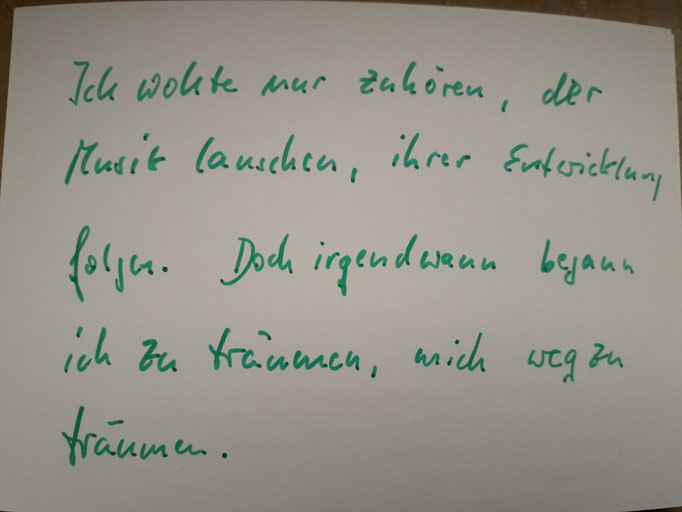 Ich wollte nur zuhören, der
Musik lauschen, ihrer Entwicklung
folgen. Doch irgendwann begann
ich zu träumen, mich weg zu
träumen.